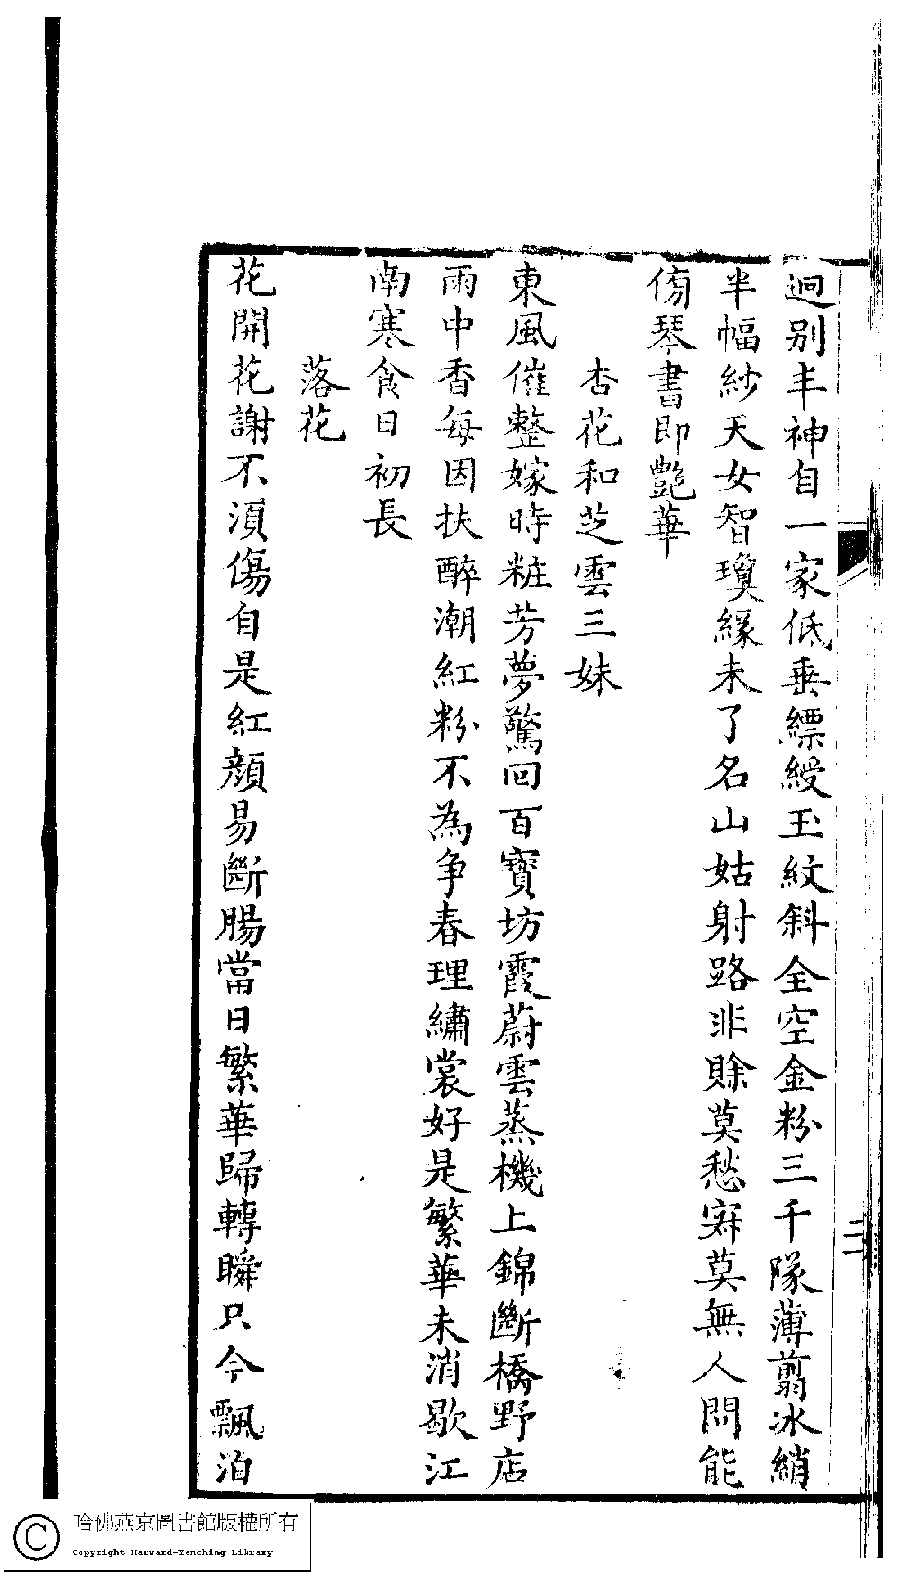 迥别丰神自一家低垂縹綬玉紋斜全空金粉三千隊薄翦冰綃
半幅紗天女智瓊緣未了名山姑射路非賒莫愁寂莫無人問能
傍琴書即艷華
杏花和芝雲三妹
東風催整嫁時粧芳夢驚回百寶坊霞蔚雲蒸機上錦斷橋野店
雨中香每因扶醉潮紅粉不為争春理繡裳好是繁華未消歇江
南寒食日初長
落花
花開花謝不須傷自是紅顔易斷腸當日繁華歸轉瞬只今飄泊
二
哈佛燕京圖書館版權所有
Copyright Harvard-Yenching Library